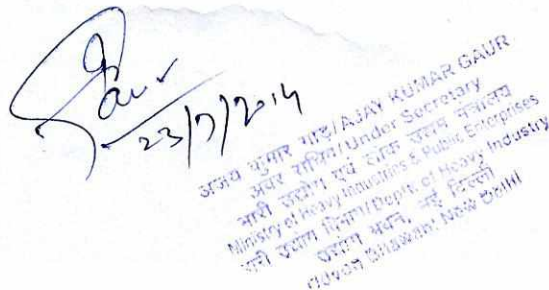 Gaur
23/7/2014
अजय कुमार गौड/AJAY KUMAR GAUR
अवर सचिव/Under Secretary
भारी उद्योग एवं लोक उद्यम मंत्रालय
Ministry of Heavy Industries & Public Enterprises
भारी उद्योग विभाग/Deptt. of Heavy Industry
उद्योग भवन, नई दिल्ली
Udyog Bhawan, New Delhi